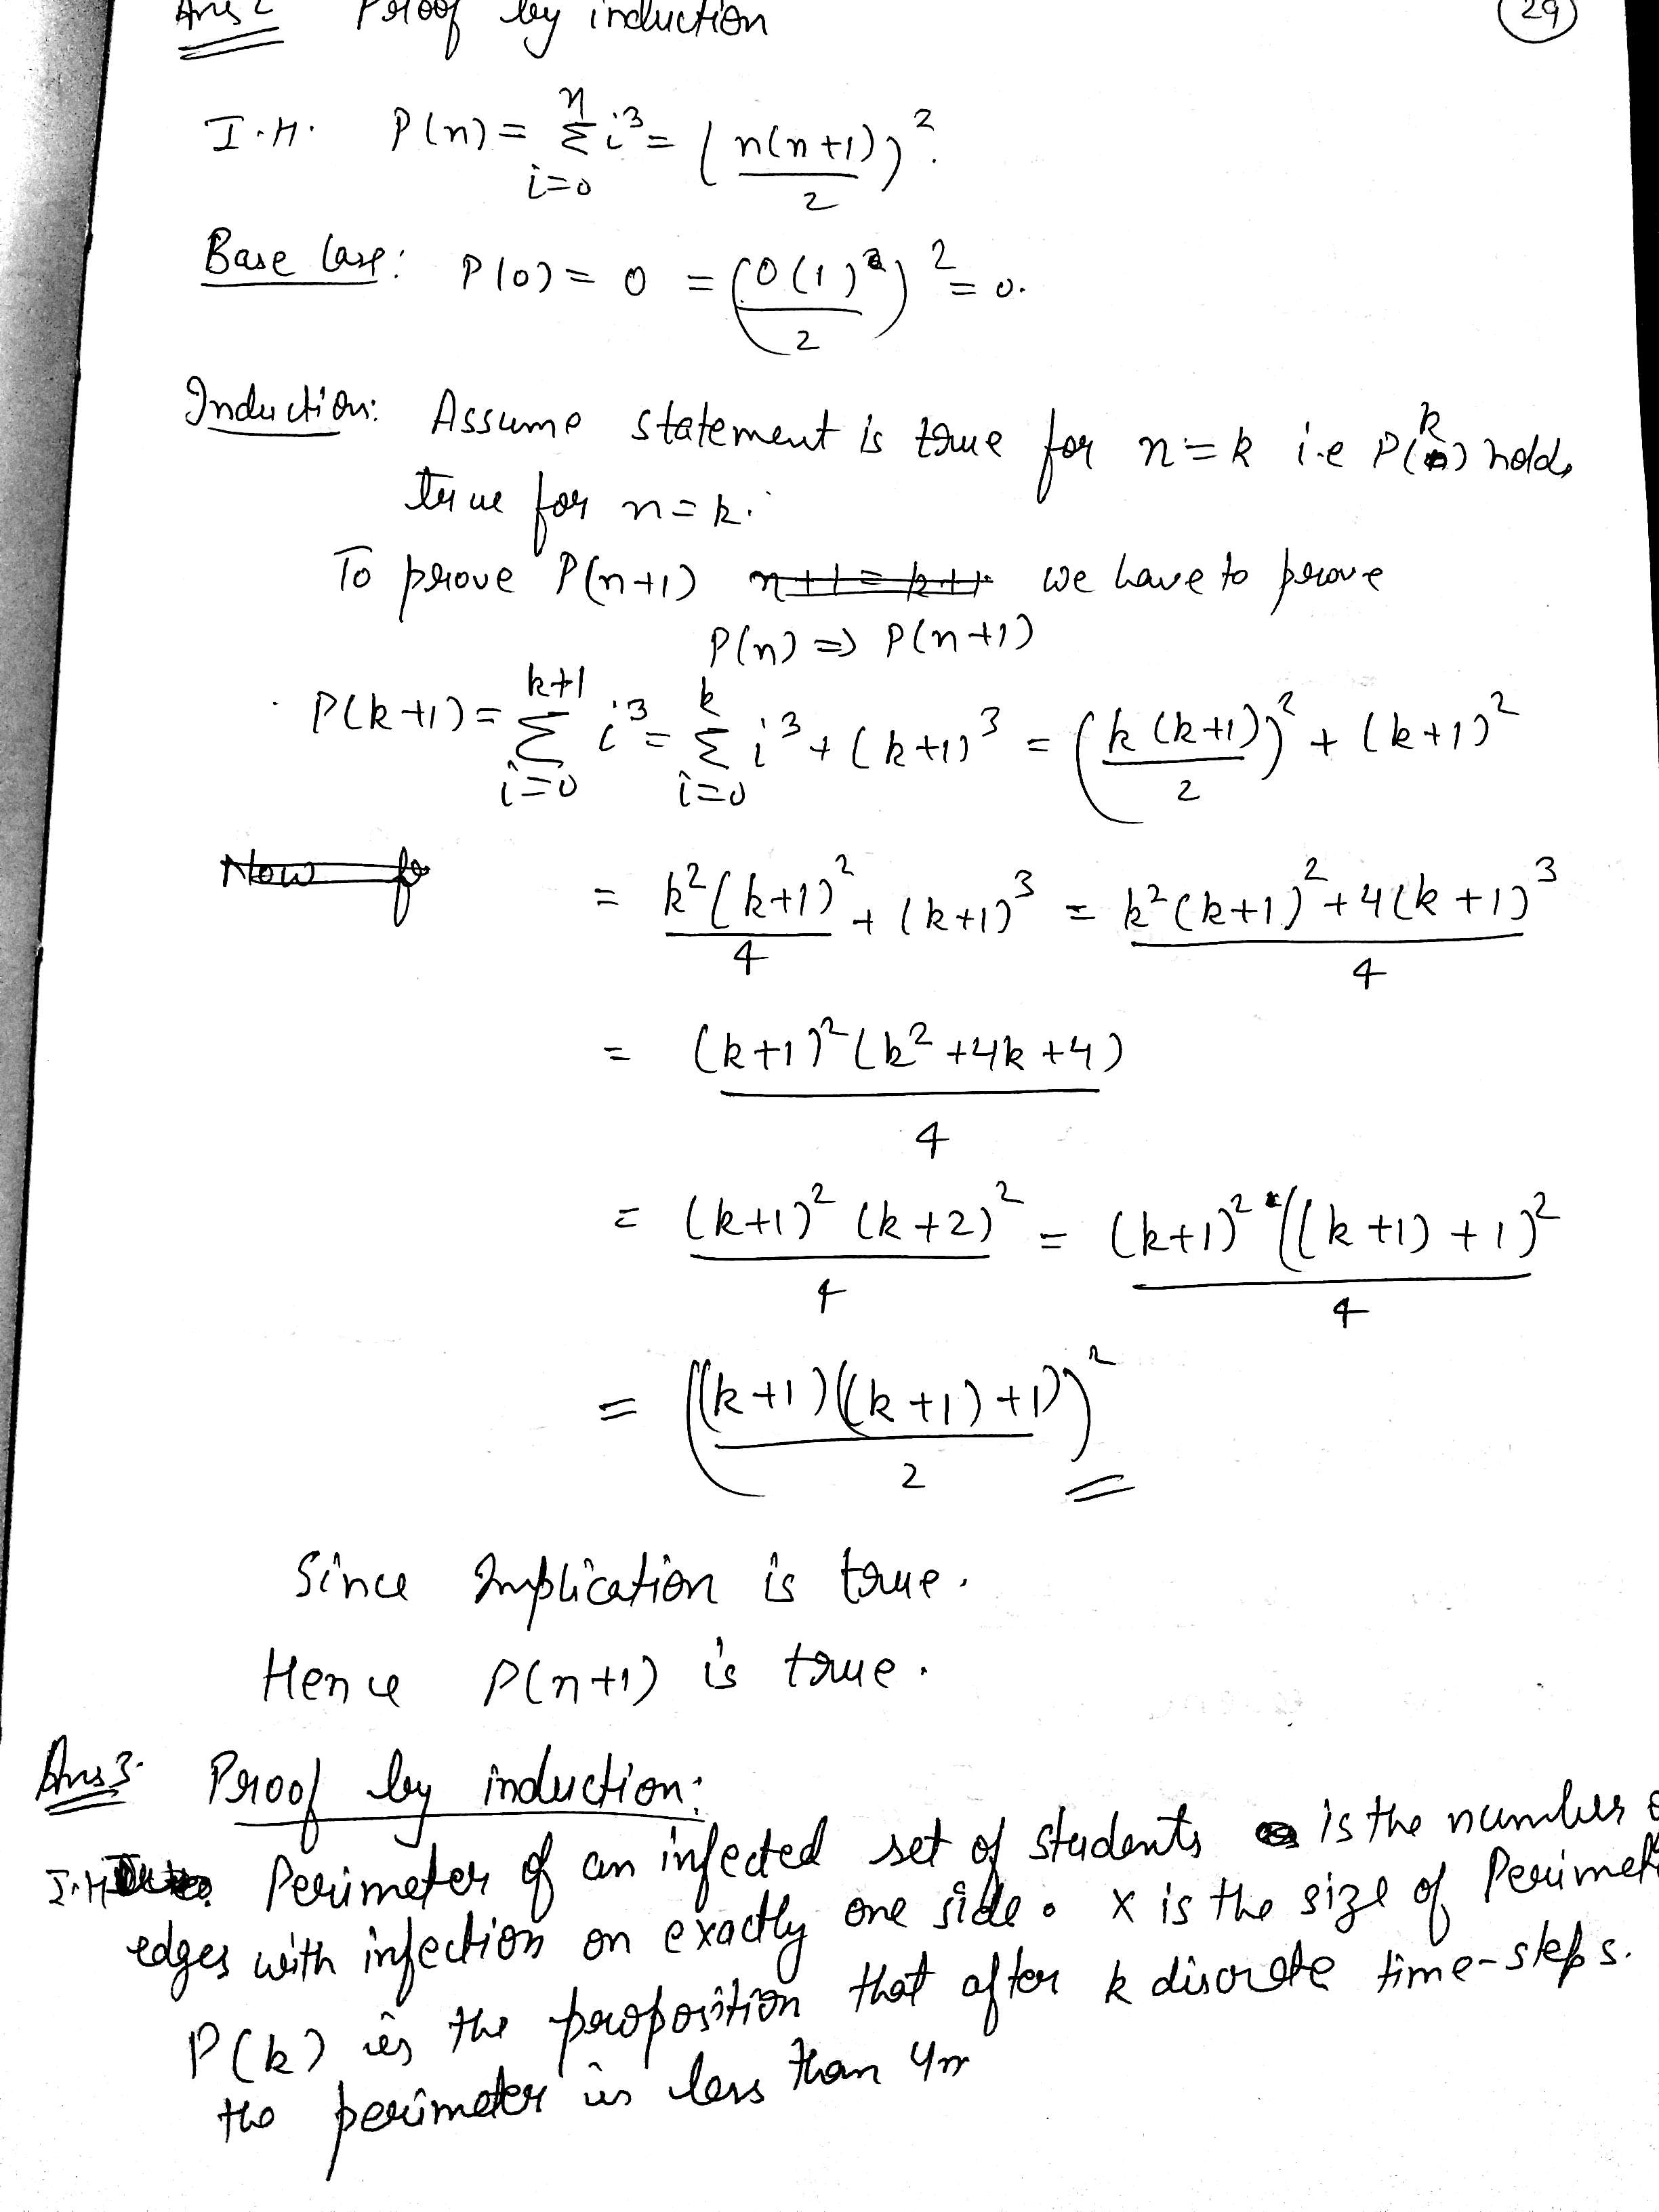 Ans 2 Proof by induction
29
I.H. P(n) = n Σ i=0 i³ = (n(n+1)/2)².
Base Case: P(0) = 0 = (0(1)/2)² = 0.
Induction: Assume statement is true for n=k i.e P(k) holds
true for n=k.
To prove P(n+1) n+1=k+1 we have to prove
P(n) ⇒ P(n+1)
P(k+1) = k+1 Σ i=0 i³ = k Σ i=0 i³ + (k+1)³ = (k(k+1)/2)² + (k+1)²
Now fo = k²(k+1)²/4 + (k+1)³ = k²(k+1)²+4(k+1)³/4
= (k+1)²(k²+4k+4)/4
= (k+1)²(k+2)²/4 = (k+1)²((k+1)+1)²/4
= ((k+1)((k+1)+1)/2)²
Since Implication is true.
Hence P(n+1) is true.
Ans3. Proof by induction:
I.H Perimeter of an infected set of students is the number
edges with infection on exactly one side. X is the size of Perimet
P(k) is the proposition that after k discrete time-steps.
the perimeter is less than 4n